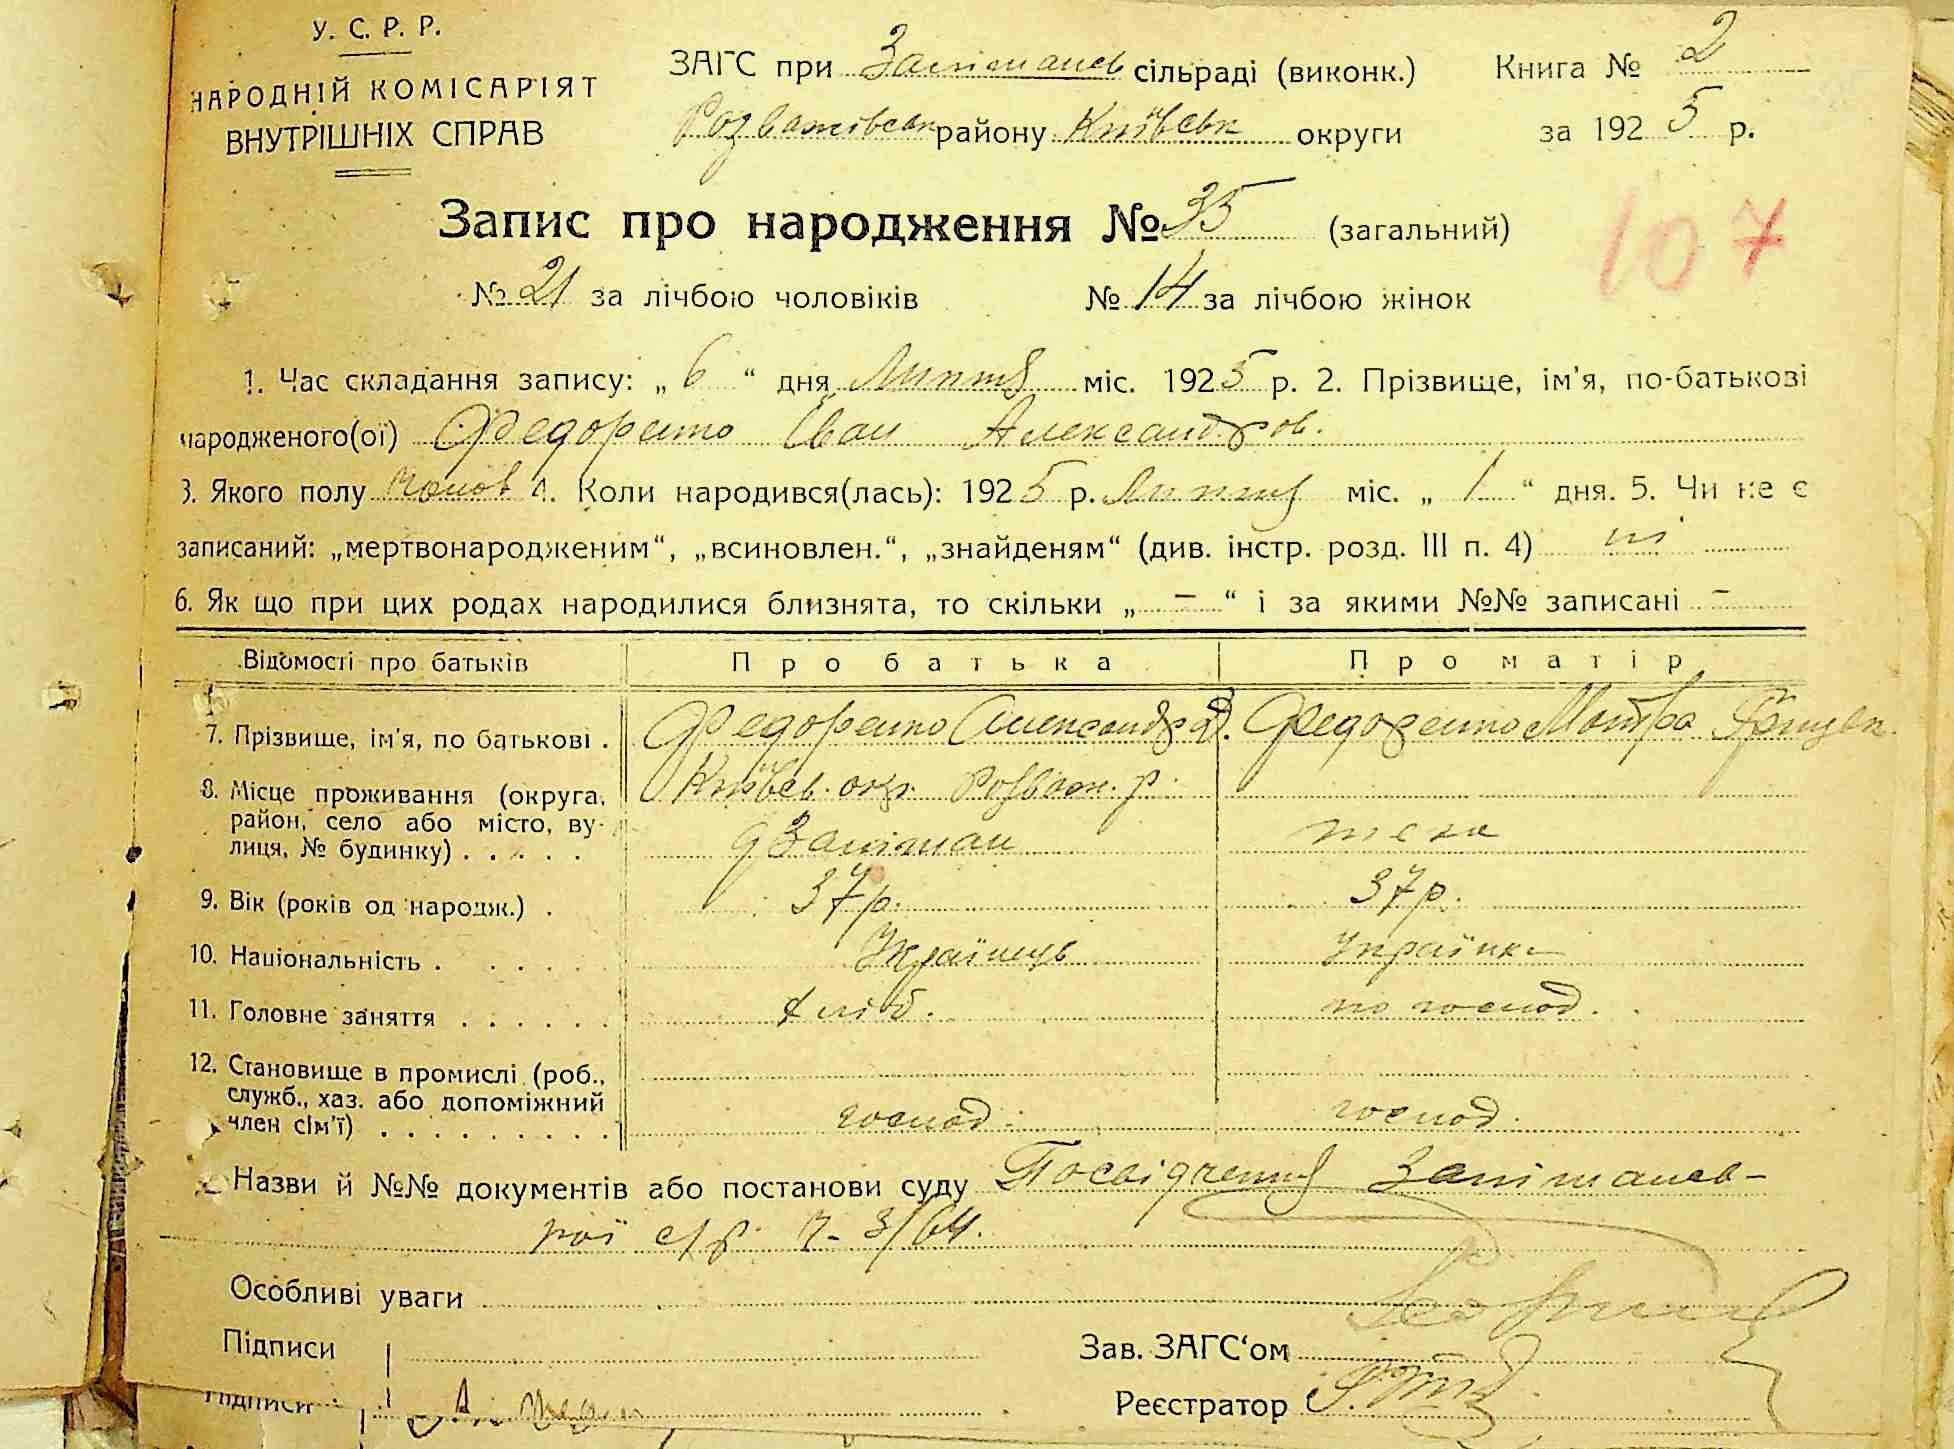 У. С. Р. Р.
НАРОДНІЙ КОМІСАРІЯТ
ВНУТРІШНІХ СПРАВ
ЗАГС при сільраді (виконк.) Книга № 2
Розважівськ району Київськ округи за 1925 р.
Запис про народження № 35 (загальний)
107
№ 21 за лічбою чоловіків № 14 за лічбою жінок
1. Час складання запису: „ 6 “ дня Липня міс. 1925 р. 2. Прізвище, ім'я, по-батькові
народженого(ої) Федоренко Іван Александров.
3. Якого полу чолов 4. Коли народився(лась): 1925 р. Липня міс. „ 1 “ дня. 5. Чи не є
записаний: „мертвонародженим“, „всиновлен.“, „знайденям“ (див. інстр. розд. III п. 4) ні
6. Як що при цих родах народилися близнята, то скільки „ – “ і за якими №№ записані –
Відомості про батьків Про батька Про матір
7. Прізвище, ім'я, по батькові . Федоренко Александр Д. Федоренко Мотра
8. Місце проживання (округа, Київсь. окр. Розваж. р.
район, село або місто, ву-
лиця, № будинку) . . . . .
9. Вік (років од народж.) . 37 р. 37 р.
10. Національність . . . . . Українець Українка
11. Головне заняття . . . . . . хліб. по господ.
12. Становище в промислі (роб.,
служб., хаз. або допоміжний
член сім'ї) . . . . . . . . . господ. господ.
Назви й №№ документів або постанови суду Посвідчення
кої с/р. ч. 3/64.
Особливі уваги
Підписи Зав. ЗАГС‘ом
Реєстратор
Підписи